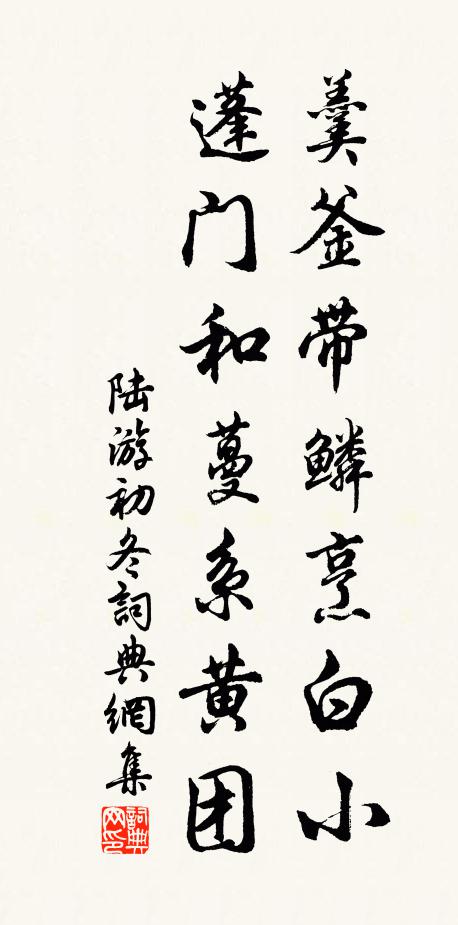 羹釜带鳞烹白小
蓬门和蔓系黄团
陆游初冬詞典網集
詞典网印